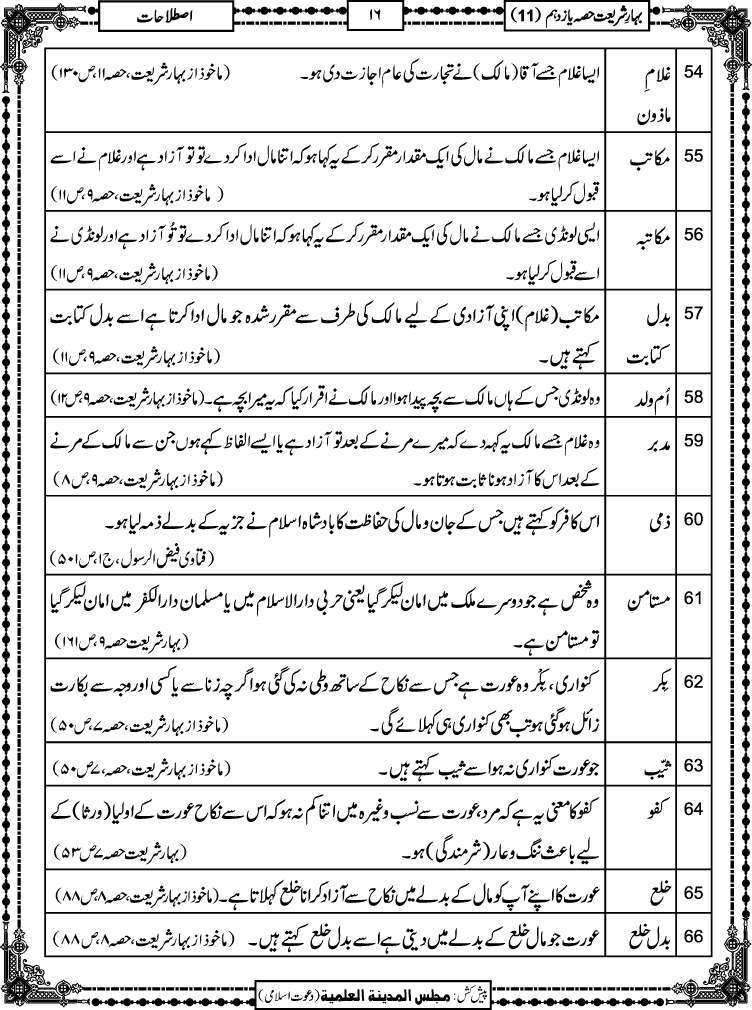 بہار شریعت حصہ یازدہم (11)
۱۶
اصطلاحات
54 غلامِ ایسا غلام جسے آقا (مالک) نے تجارت کی عام اجازت دی ہو۔ (ماخوذ از بہار شریعت، حصہ ۱۱، ص ۱۳۰)
ماذون
55 مکاتب ایسا غلام جسے مالک نے مال کی ایک مقدار مقرر کر کے یہ کہا ہو کہ اتنا مال ادا کر دے تو تو آزاد ہے اور غلام نے اسے
قبول کر لیا ہو۔ (ماخوذ از بہار شریعت، حصہ ۹، ص ۱۱)
56 مکاتبہ ایسی لونڈی جسے مالک نے مال کی ایک مقدار مقرر کر کے یہ کہا ہو کہ اتنا مال ادا کر دے تو تُو آزاد ہے اور لونڈی نے
اسے قبول کر لیا ہو۔ (ماخوذ از بہار شریعت، حصہ ۹، ص ۱۱)
57 بدل مکاتب (غلام) اپنی آزادی کے لیے مالک کی طرف سے مقرر شدہ جو مال ادا کرتا ہے اسے بدل کتابت
کتابت کہتے ہیں۔ (ماخوذ از بہار شریعت، حصہ ۹، ص ۱۱)
58 اُم ولد وہ لونڈی جس کے ہاں مالک سے بچہ پیدا ہوا اور مالک نے اقرار کیا کہ یہ میرا بچہ ہے۔ (ماخوذ از بہار شریعت، حصہ ۹، ص ۱۲)
59 مدبر وہ غلام جسے مالک یہ کہہ دے کہ میرے مرنے کے بعد تو آزاد ہے یا ایسے الفاظ کہے ہوں جن سے مالک کے مرنے
کے بعد اس کا آزاد ہونا ثابت ہوتا ہو۔ (ماخوذ از بہار شریعت، حصہ ۹، ص ۸)
60 ذمی اس کافر کو کہتے ہیں جس کے جان و مال کی حفاظت کا بادشاہ اسلام نے جزیہ کے بدلے ذمہ لیا ہو۔
(فتاوی فیض الرسول، ج ۱، ص ۵۰۱)
61 مستامن وہ شخص ہے جو دوسرے ملک میں امان لیکر گیا یعنی حربی دارالاسلام میں یا مسلمان دارالکفر میں امان لیکر گیا
تو مستامن ہے۔ (بہار شریعت، حصہ ۹، ص ۱۶۱)
62 بِکر کنواری، بِکْر وہ عورت ہے جس سے نکاح کے ساتھ وطی نہ کی گئی ہو اگرچہ زنا سے یا کسی اور وجہ سے بکارت
زائل ہو گئی ہو تب بھی کنواری ہی کہلائے گی۔ (ماخوذ از بہار شریعت، حصہ ۷، ص ۵۰)
63 ثَیِّب جو عورت کنواری نہ ہو اسے ثیب کہتے ہیں۔ (ماخوذ از بہار شریعت، حصہ، ۷، ص ۵۰)
64 کفو کفو کا معنی یہ ہے کہ مرد، عورت سے نسب وغیرہ میں اتنا کم نہ ہو کہ اس سے نکاح عورت کے اولیا (ورثا) کے
لیے باعث ننگ و عار (شرمندگی) ہو۔ (بہار شریعت حصہ ۷ ص ۵۳)
65 خلع عورت کا اپنے آپ کو مال کے بدلے میں نکاح سے آزاد کرانا خلع کہلاتا ہے۔ (ماخوذ از بہار شریعت، حصہ ۸، ص ۸۸)
66 بدل خلع عورت جو مال خلع کے بدلے میں دیتی ہے اسے بدل خلع کہتے ہیں۔ (ماخوذ از بہار شریعت، حصہ ۸، ص ۸۸)
پیش کش: مجلس المدینۃ العلمیۃ (دعوت اسلامی)